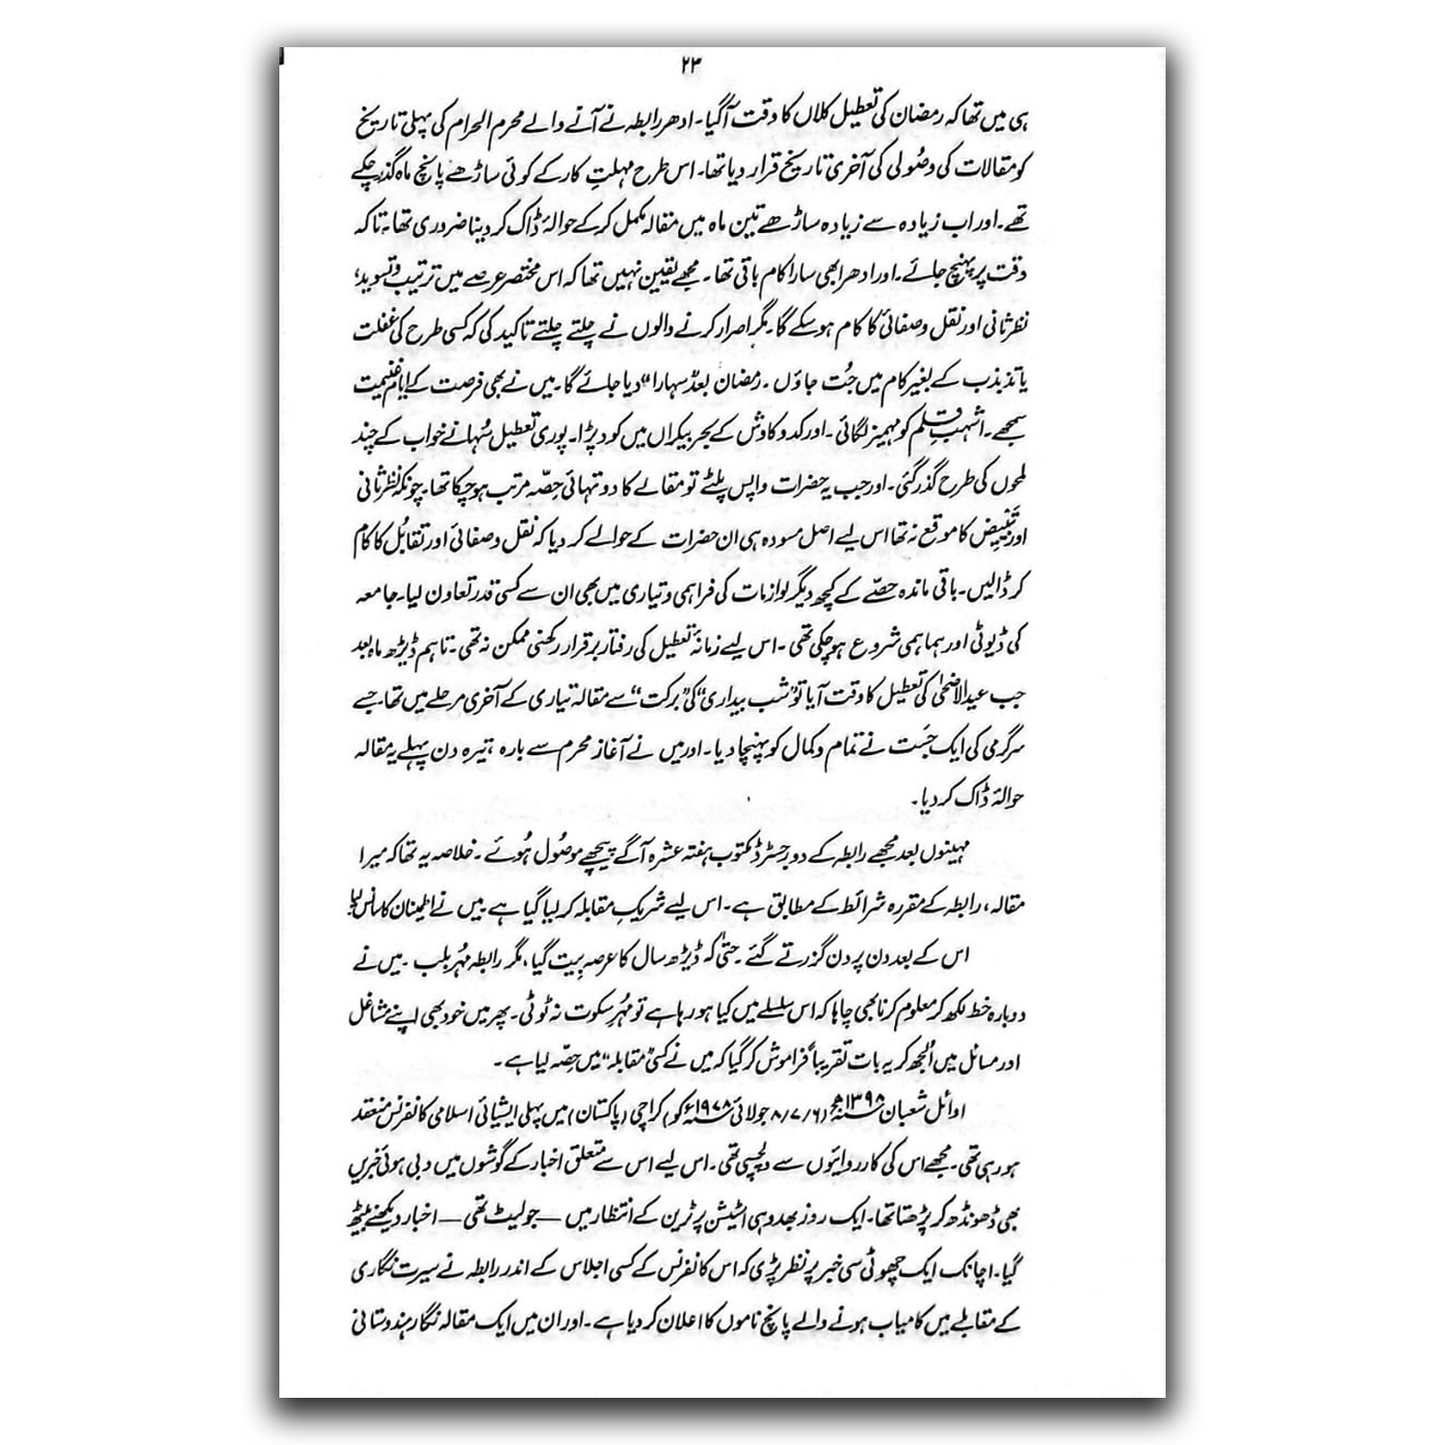 ۲۳
ہی میں تھا کہ رمضان کی تعطیل کلاں کا وقت آ گیا۔ ادھر رابطہ نے آنے والے محرم الحرام کی پہلی تاریخ
کو مقالات کی وصُولی کی آخری تاریخ قرار دیا تھا۔ اس طرح مہلتِ کار کے کوئی ساڑھے پانچ ماہ گذر چکے
تھے۔ اور اب زیادہ سے زیادہ ساڑھے تین ماہ میں مقالہ مکمل کر کے حوالۂ ڈاک کر دینا ضروری تھا۔ تاکہ
وقت پر پہنچ جائے۔ اور ادھر ابھی سارا کام باقی تھا۔ مجھے یقین نہیں تھا کہ اس مختصر عرصے میں ترتیب و تسوید،
نظر ثانی اور نقل و صفائی کا کام ہو سکے گا۔ مگر اصرار کرنے والوں نے چلتے چلتے تاکید کی کہ کسی طرح کی غفلت
یا تذبذب کے بغیر کام میں جُٹ جاؤں۔ رمضان بعد ”سہارا“ دیا جائے گا۔ میں نے بھی فرصت کے ایام غنیمت
سمجھے۔ اشہبِ قلم کو مہمیز لگائی۔ اور کدو کاوش کے بحرِ بیکراں میں کود پڑا۔ پوری تعطیل سُہانے خواب کے چند
لمحوں کی طرح گذر گئی۔ اور جب یہ حضرات واپس پلٹے تو مقالے کا دو تہائی حصّہ مرتب ہو چکا تھا۔ چونکہ نظر ثانی
اور تَبْیِیض کا موقع نہ تھا اس لیے اصل مسودہ ہی ان حضرات کے حوالے کر دیا کہ نقل و صفائی اور تقابُل کا کام
کر ڈالیں۔ باقی ماندہ حصّے کے کچھ دیگر لوازمات کی فراہمی و تیاری میں بھی ان سے کسی قدر تعاون لیا۔ جامعہ
کی ڈیوٹی اور ہماہمی شروع ہو چکی تھی۔ اس لیے زمانۂ تعطیل کی رفتار برقرار رکھنی ممکن نہ تھی۔ تاہم ڈیڑھ ماہ بعد
جب عید الاضحیٰ کی تعطیل کا وقت آیا تو ”شب بیداری“ کی ”برکت“ سے مقالہ تیاری کے آخری مرحلے میں تھا۔ جسے
سرگرمی کی ایک جَست نے تمام و کمال کو پہنچا دیا۔ اور میں نے آغاز محرم سے بارہ تیرہ دن پہلے یہ مقالہ
حوالۂ ڈاک کر دیا۔
مہینوں بعد مجھے رابطہ کے دو رجسٹرڈ مکتوب ہفتہ عشرہ آگے پیچھے موصُول ہُوئے۔ خلاصہ یہ تھا کہ میرا
مقالہ، رابطہ کے مقررہ شرائط کے مطابق ہے۔ اس لیے شریکِ مقابلہ کر لیا گیا ہے۔ میں نے اطمینان کا سانس لیا۔
اس کے بعد دن پر دن گزرتے گئے۔ حتیٰ کہ ڈیڑھ سال کا عرصہ بِیت گیا، مگر رابطہ مُہر بلب۔ میں نے
دوبارہ خط لکھ کر معلوم کرنا بھی چاہا کہ اس سلسلے میں کیا ہو رہا ہے تو مُہرِ سکوت نہ ٹوٹی۔ پھر میں خود بھی اپنے مشاغل
اور مسائل میں اُلجھ کر یہ بات تقریباً فراموش کر گیا کہ میں نے کسی ”مقابلہ“ میں حصّہ لیا ہے۔
اوائل شعبان ۱۳۹۸ھ (۶/۷/۸ جولائی ۱۹۷۸ء کو) کراچی (پاکستان) میں پہلی ایشیائی اسلامی کانفرنس منعقد
ہو رہی تھی۔ مجھے اس کی کارروائیوں سے دلچسپی تھی۔ اس لیے اس سے متعلق اخبار کے گوشوں میں دبی ہوئی خبریں
بھی ڈھونڈھ کر پڑھتا تھا۔ ایک روز بھدوہی اسٹیشن پر ٹرین کے انتظار میں — جو لیٹ تھی — اخبار دیکھنے بیٹھ
گیا۔ اچانک ایک چھوٹی سی خبر پر نظر پڑی کہ اس کانفرنس کے کسی اجلاس کے اندر رابطہ نے سیرت نگاری
کے مقابلے میں کامیاب ہونے والے پانچ ناموں کا اعلان کر دیا ہے۔ اور ان میں ایک مقالہ نگار ہندوستانی